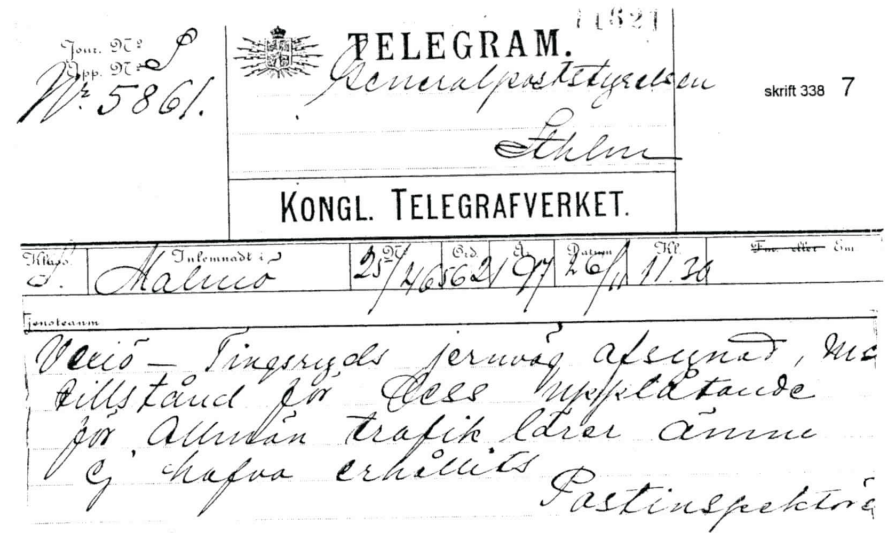 Jour. Nº S
Opp. Nº
Nr 5861.
TELEGRAM.
Generalpoststyrelsen
Sthlm
skrift 338 7
KONGL. TELEGRAFVERKET.
Klass. Inlemnadt i Nº Ord. Datum Kl. Fm. eller Em
S. Malmö 97 26/11 11.30
Tjensteanm
Vexiö – Tingsryds jernväg afsynad, me
tillstånd för dess upplåtande
för Allmän trafik lärer ännu
ej hafva erhållits
Postinspektöre